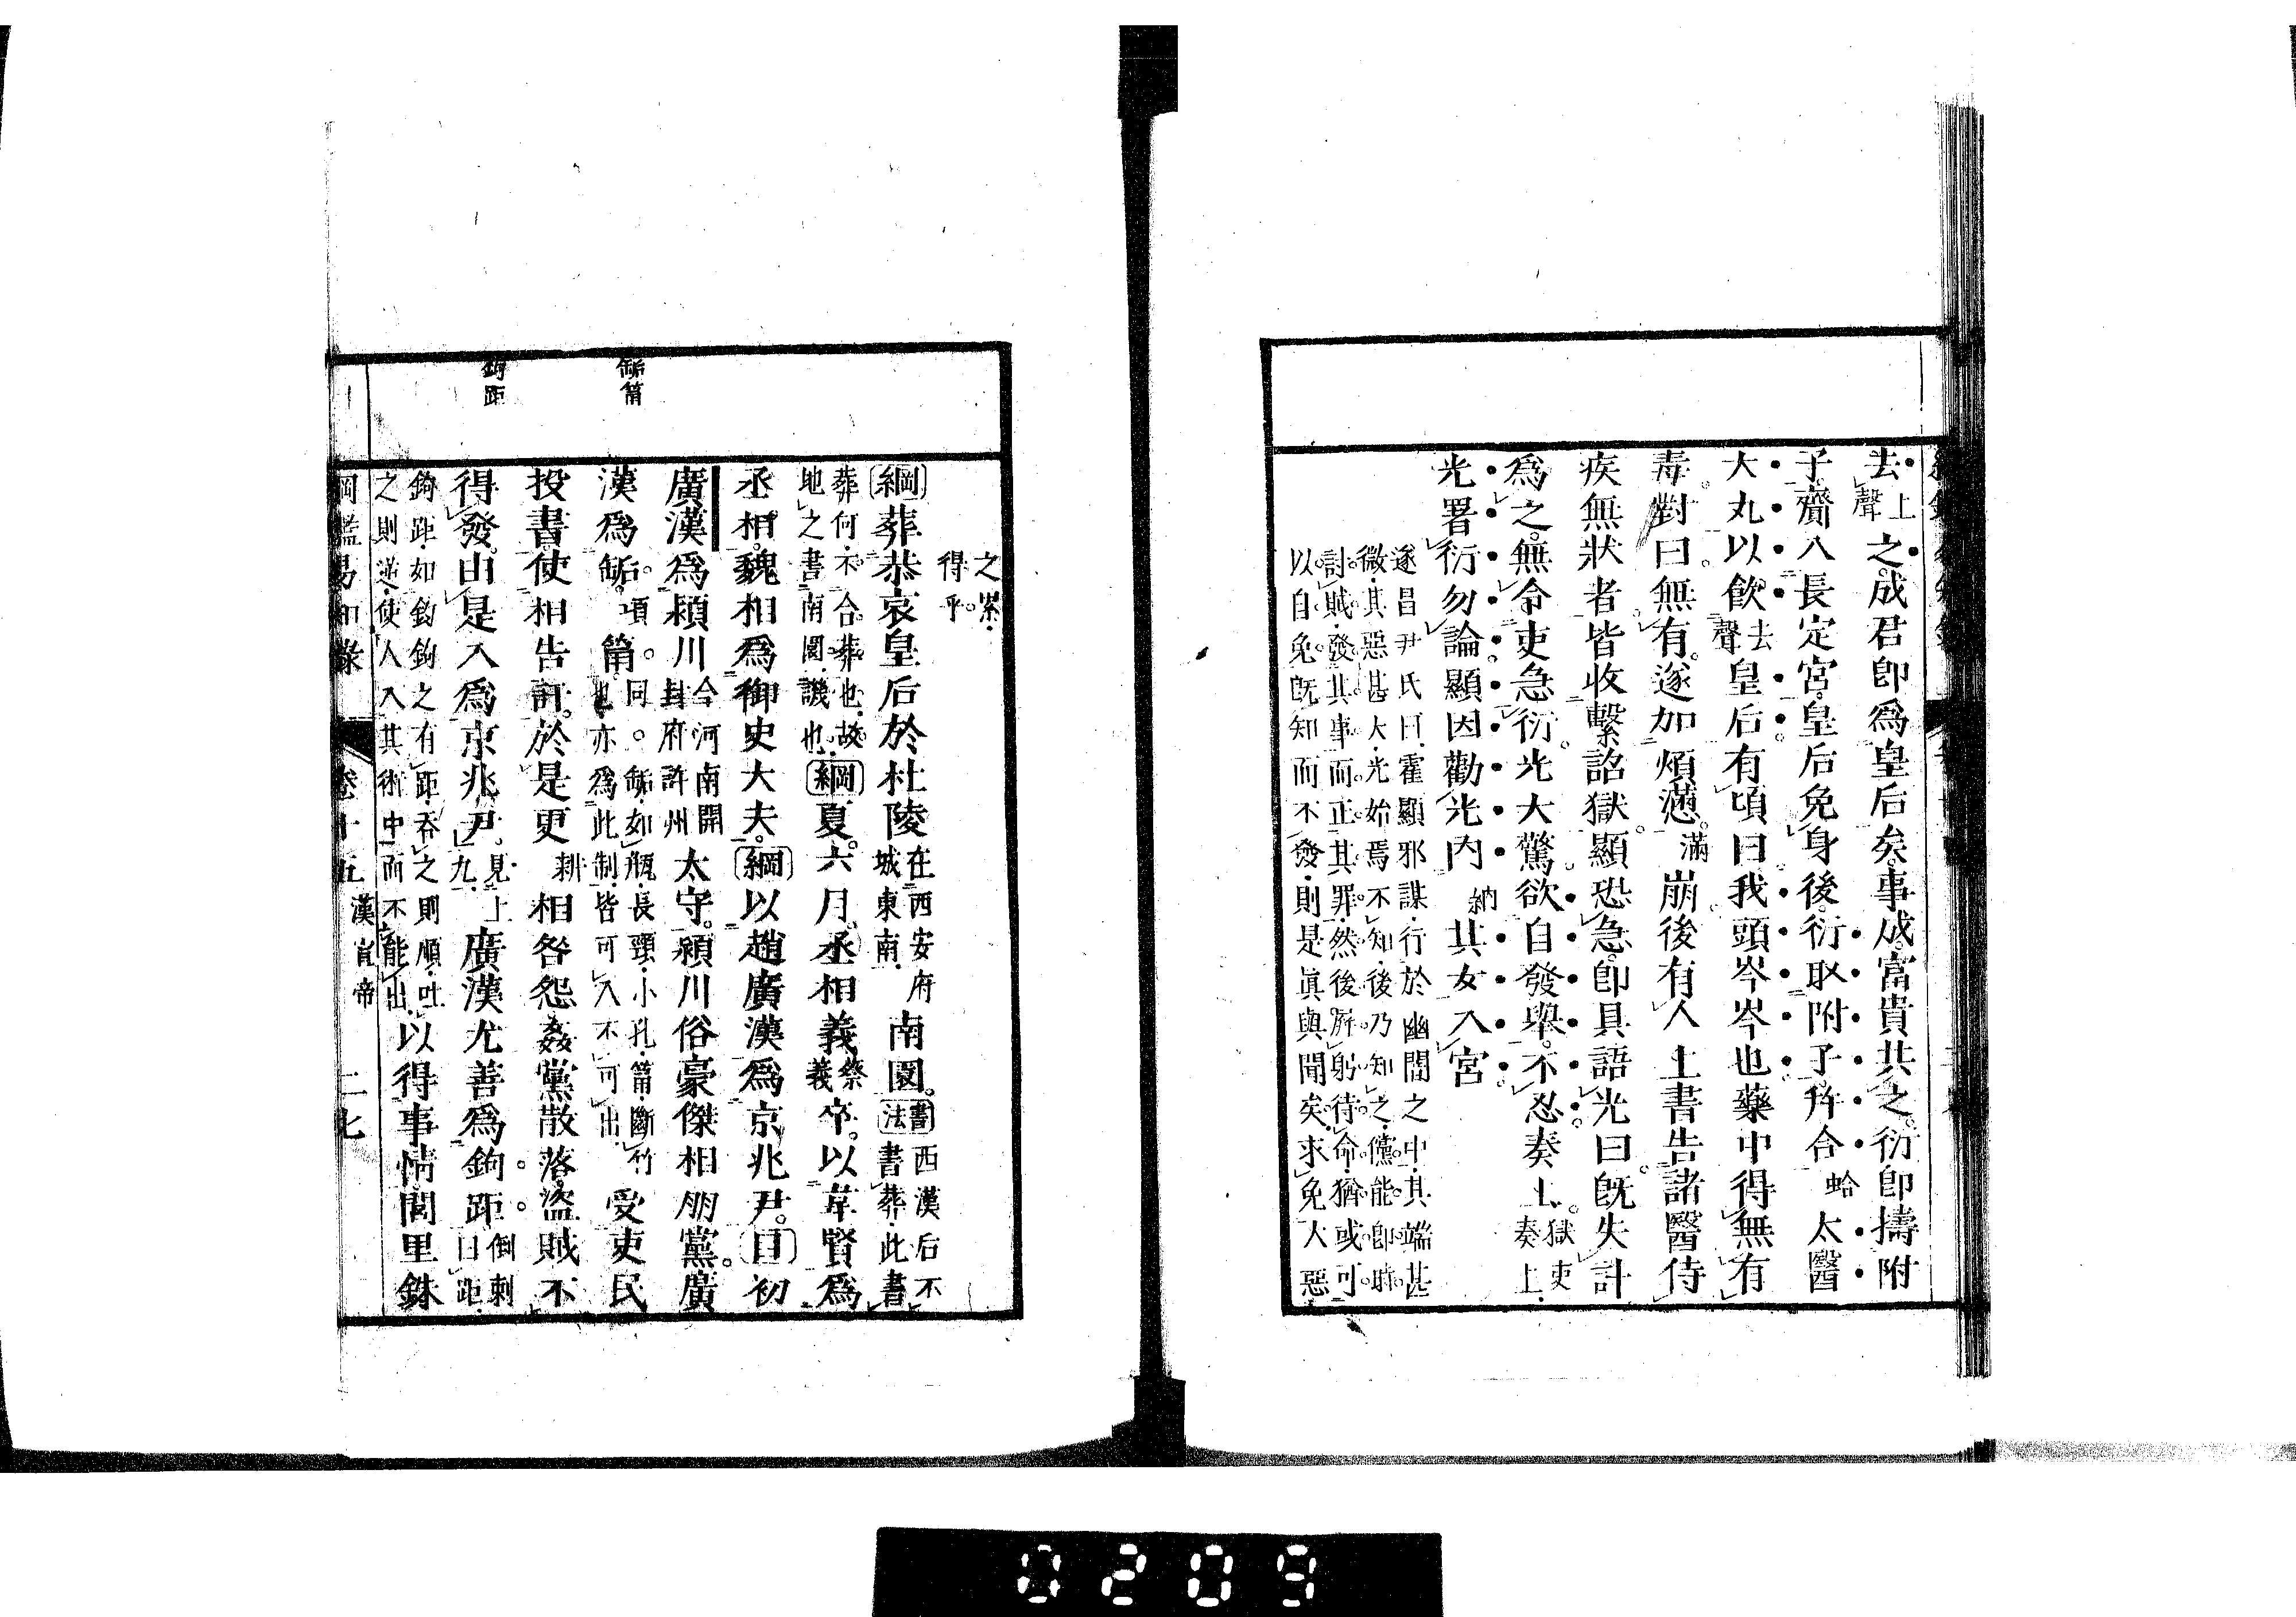 去上聲之成君卽爲皇后矣事成富貴共之衍卽擣附
子齎入長定宮皇后免身後衍取附子幷合蛤太醫
大丸以飲去聲皇后有頃曰我頭岑岑也藥中得無有
毒對曰無有遂加煩懣滿崩後有人上書告諸醫侍
疾無狀者皆收繫詔獄顯恐急卽具語光曰旣失計
爲之無令吏急衍光大驚欲自發舉不忍奏上獄吏奏上
光署衍勿論顯因勸光內納其女入宮
遂昌尹氏曰霍顯邪謀行於幽闇之中其端甚
微其惡甚大光始焉不知後乃知之儻能卽時
討賊發其事而正其罪然後屛躬待命猶或可
以自免旣知而不發則是眞與聞矣求免大惡
之累
得乎
綱葬恭哀皇后於杜陵在西安府城東南南園書法西漢后不書葬此書
葬何不合葬也故
地之書南園譏也綱夏六月丞相義義蔡卒以韋賢爲
丞相魏相爲御史大夫綱以趙廣漢爲京兆尹目初
廣漢爲潁川今河南開封府許州太守潁川俗豪傑相朋黨廣
漢爲缿項筩同缿如瓶長頸小孔筩斷竹也亦爲此制皆可入不可出受吏民
投書使相告訐於是更耕相咎怨姦黨散落盜賊不
得發由是入爲京兆尹見上九廣漢尤善爲鉤距倒刺曰距
鉤距如釣鉤之有距吞之則順吐
之則逆使人入其術中而不能出以得事情閭里銖
缿筩
鉤距
綱鑑易知錄
卷十五
漢宣帝
二七
0209